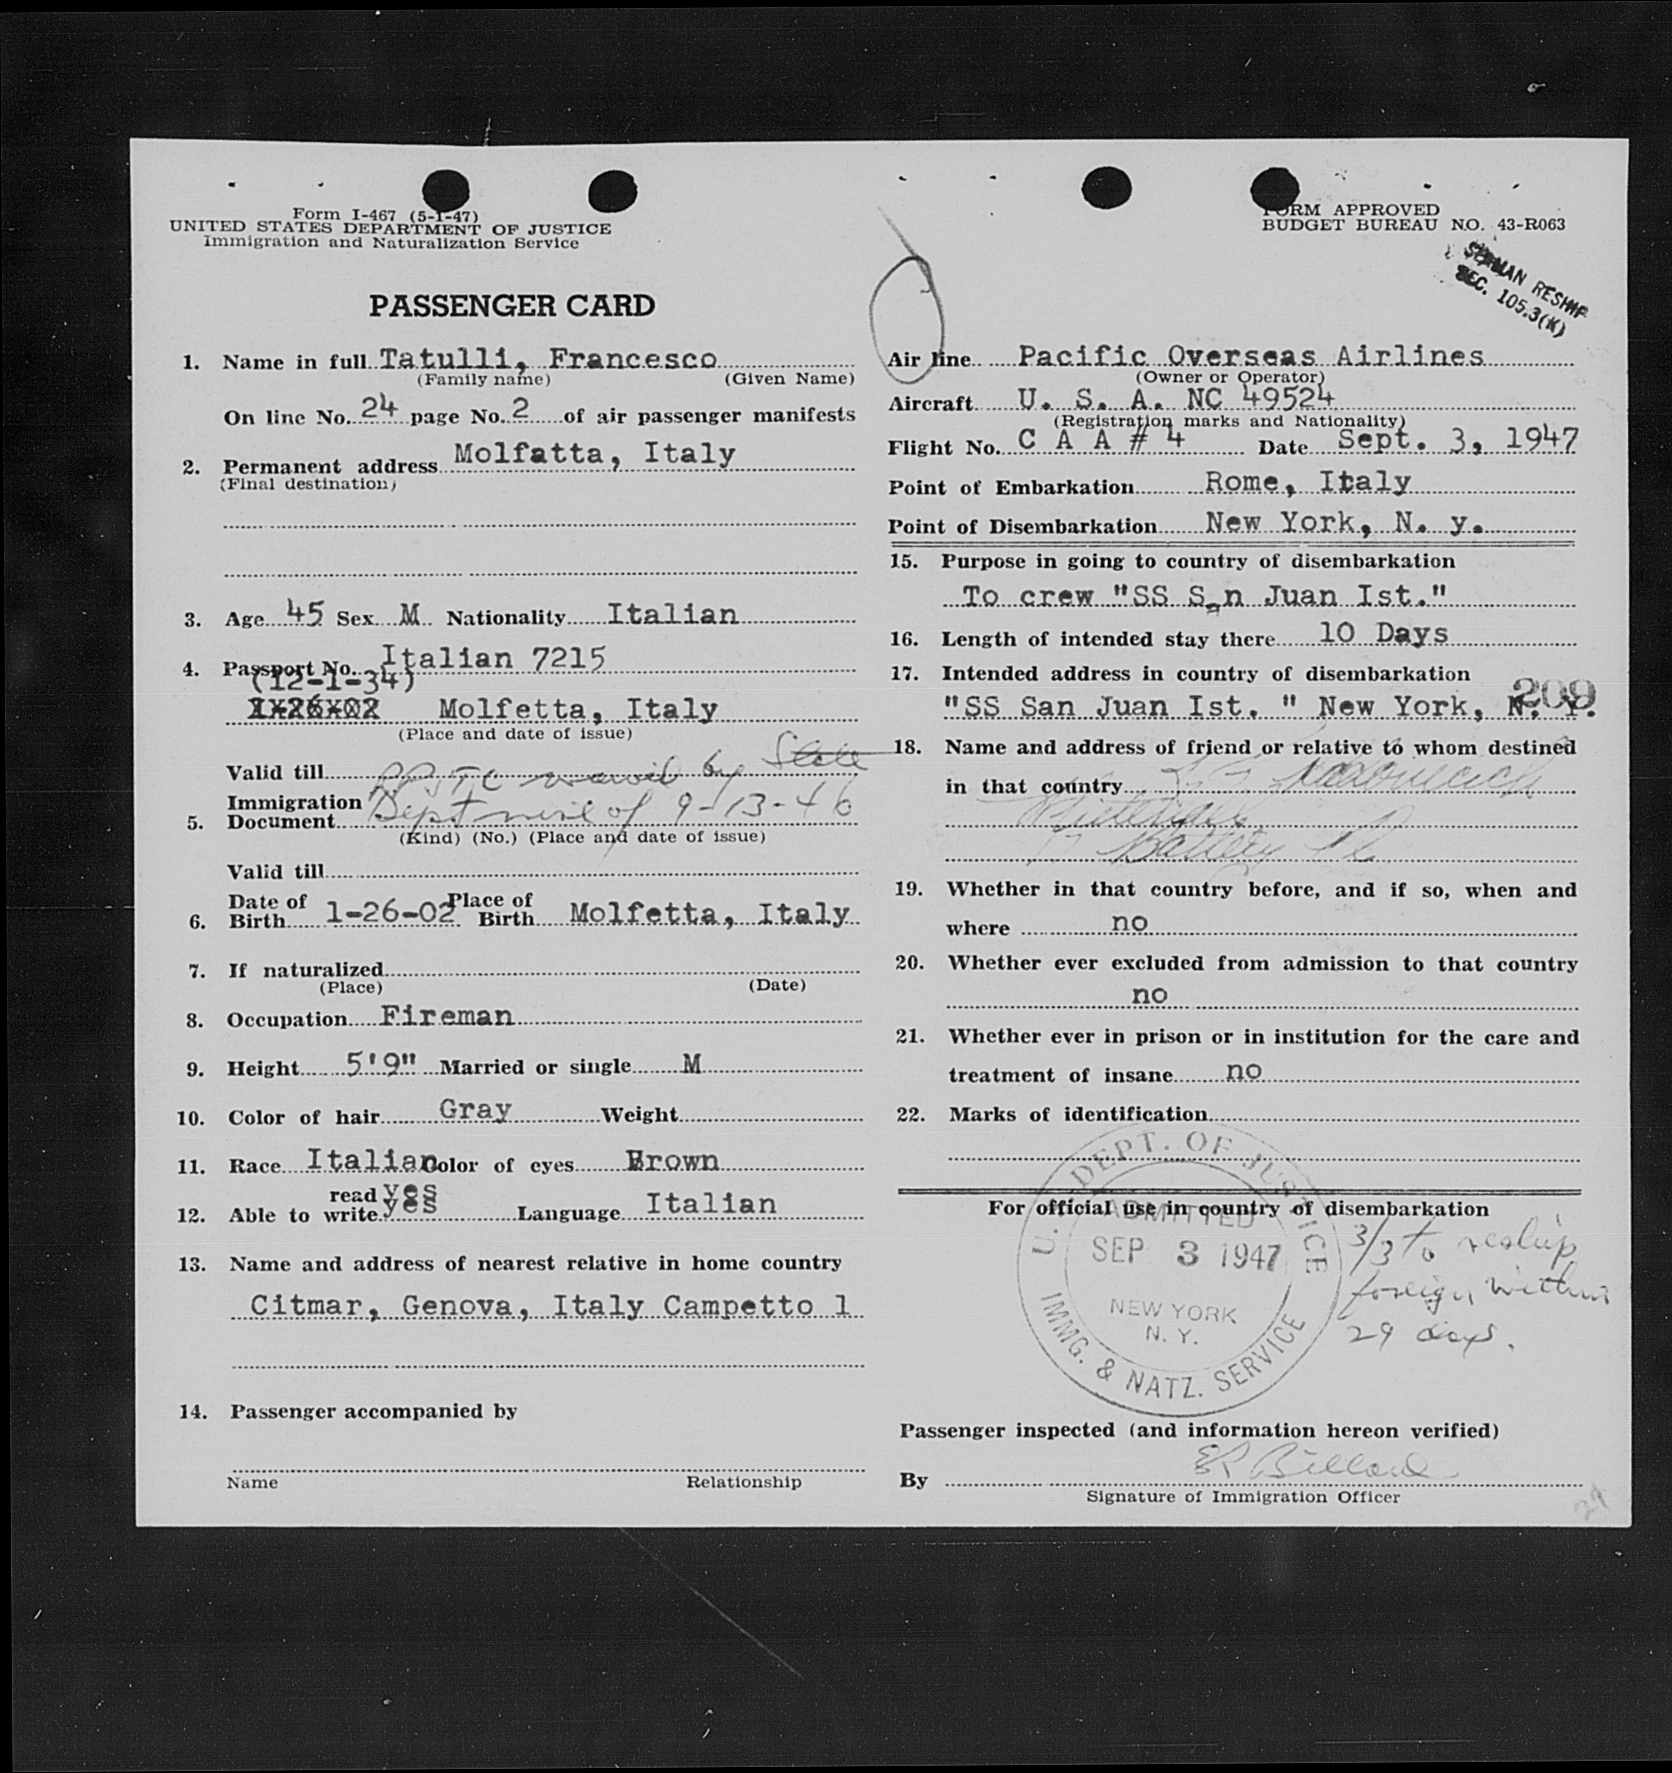 Form I-467 (5-1-47)
UNITED STATES DEPARTMENT OF JUSTICE
Immigration and Naturalization Service
PASSENGER CARD
1. Name in full Tatulli, Francesco
(Family name) (Given Name)
On line No. 24 page No. 2 of air passenger manifests
2. Permanent address Molfatta, Italy
(Final destination)
3. Age 45 Sex M Nationality Italian
4. Passport No. Italian 7215
(12-1-34)
Molfetta, Italy
(Place and date of issue)
Valid till PP TC waived by State
5. Immigration Document Dept of 9-13-46
(Kind) (No.) (Place and date of issue)
Valid till
6. Date of Birth 1-26-02 Place of Birth Molfetta, Italy
7. If naturalized
(Place) (Date)
8. Occupation Fireman
9. Height 5'9" Married or single M
10. Color of hair Gray Weight
11. Race Italian Color of eyes Brown
read yes
12. Able to write yes Language Italian
13. Name and address of nearest relative in home country
Citmar, Genova, Italy Campetto 1
14. Passenger accompanied by
Name Relationship
FORM APPROVED
BUDGET BUREAU NO. 43-R063
SEAMAN RESHIP
SEC. 105.3(K)
Air line Pacific Overseas Airlines
(Owner or Operator)
Aircraft U. S. A. NC 49524
(Registration marks and Nationality)
Flight No. C A A # 4 Date Sept. 3, 1947
Point of Embarkation Rome, Italy
Point of Disembarkation New York, N. y.
15. Purpose in going to country of disembarkation
To crew "SS San Juan Ist."
16. Length of intended stay there 10 Days
17. Intended address in country of disembarkation
209
"SS San Juan Ist. " New York, N. Y.
18. Name and address of friend or relative to whom destined
in that country
Battery Pl
19. Whether in that country before, and if so, when and
where no
20. Whether ever excluded from admission to that country
no
21. Whether ever in prison or in institution for the care and
treatment of insane no
22. Marks of identification
For official use in country of disembarkation
U. S. DEPT. OF JUSTICE
ADMITTED
SEP 3 1947
NEW YORK
N. Y.
IMMG. & NATZ. SERVICE
3/3 to reship
foreign within
29 days.
Passenger inspected (and information hereon verified)
By E R Billard
Signature of Immigration Officer
29